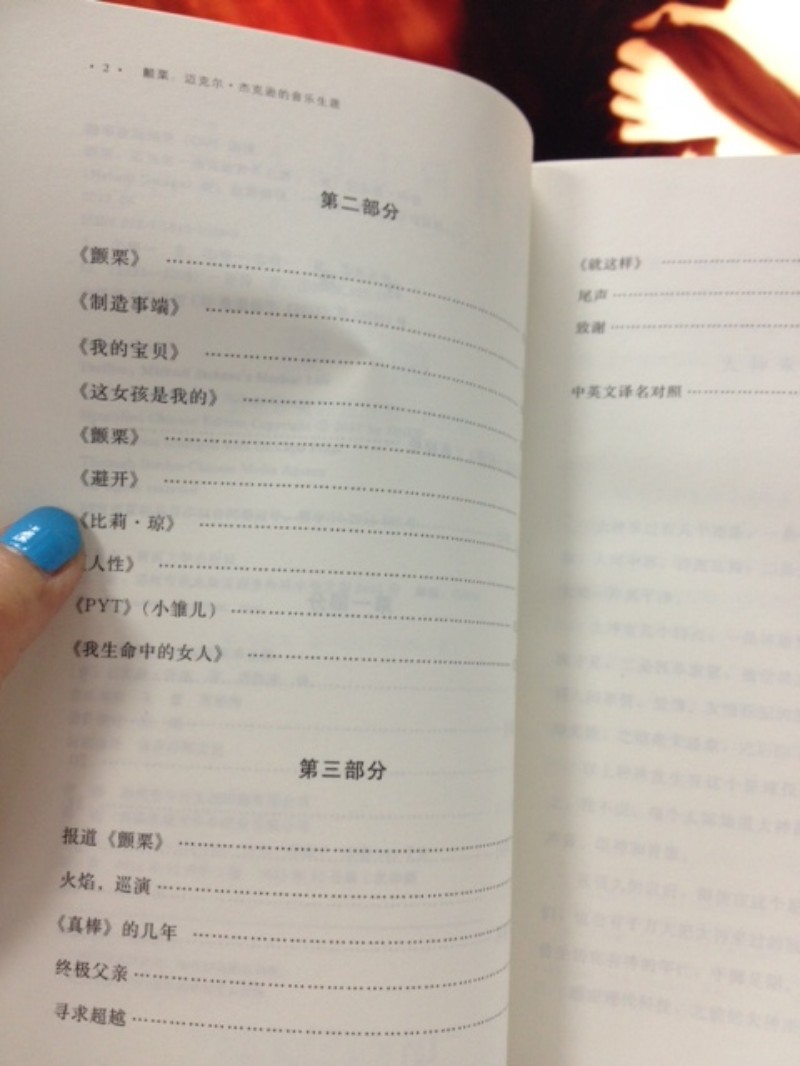 · 2 · 颤栗：迈克尔·杰克逊的音乐生涯
第二部分
《颤栗》
《制造事端》
《我的宝贝》
《这女孩是我的》
《颤栗》
《避开》
《比莉·琼》
人性》
《PYT》（小雏儿）
《我生命中的女人》
第三部分
报道《颤栗》
火焰，巡演
《真棒》的几年
终极父亲
寻求超越
《就这样》
尾声
致谢
中英文译名对照